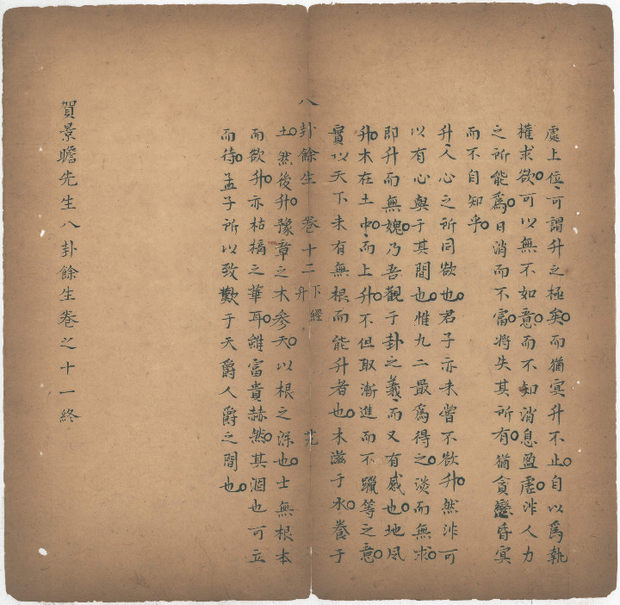 處上位、可謂升之極矣。而猶冥升不止。自以為執
權求欲。可以無不如意。而不知消息盈虛。非人力
之所能為。日消而不富。將失其所有。猶貪戀昏冥
而不自知乎。
升、人心之所同欲也。君子亦未嘗不欲升。然非可
以有心與于其間也。惟九二最為得之。淡而無求。
即升而無媿。乃吾觀于卦之義、而又有感也。地風
升。木在土中。而上升。不但取漸進而不躐等之意。
實以天下未有無根而能升者也。木滋于水。養于
八卦餘生 卷十二 下經 升 九
土。然後升。豫章之木參天。以根之深也。士無根本
而欲升。亦枯槁之華耳。雖富貴赫然。其涸也可立
而待。孟子所以致歎于天爵人爵之間也。
賀景瞻先生八卦餘生卷之十一終